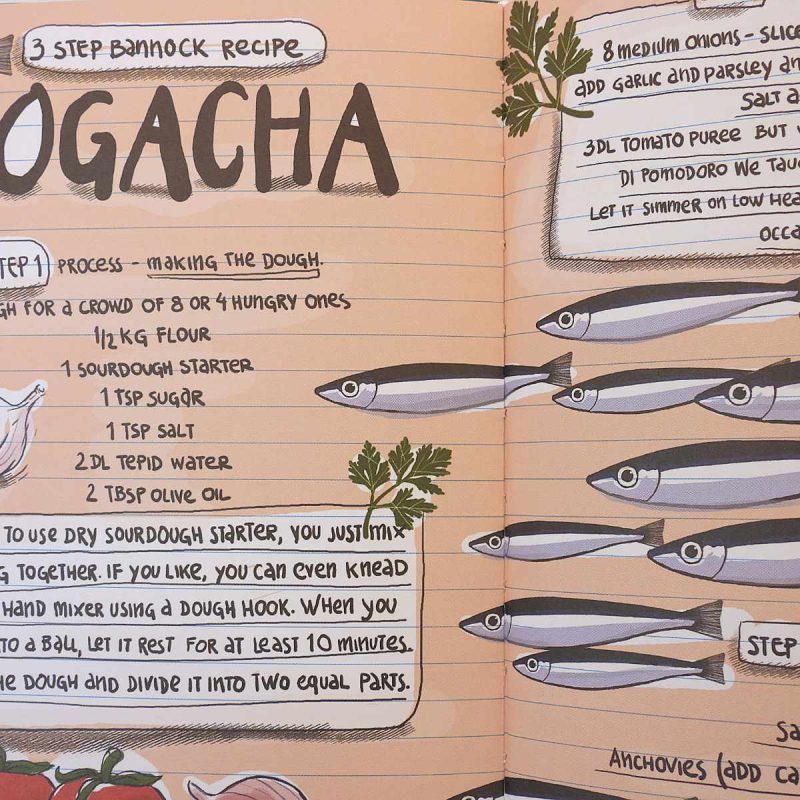 3 STEP BANNOCK RECIPE
OGACHA
STEP 1 PROCESS - MAKING THE DOUGH.
GH FOR A CROWD OF 8 OR 4 HUNGRY ONES
1/2 KG FLOUR
1 SOURDOUGH STARTER
1 TSP SUGAR
1 TSP SALT
2DL TEPID WATER
2 TBSP OLIVE OIL
TO USE DRY SOURDOUGH STARTER, YOU JUST MIX
G TOGETHER. IF YOU LIKE, YOU CAN EVEN KNEAD
HAND MIXER USING A DOUGH HOOK. WHEN YOU
TO A BALL, LET IT REST FOR AT LEAST 10 MINUTES.
HE DOUGH AND DIVIDE IT INTO TWO EQUAL PARTS.
8 MEDIUM ONIONS - SLICE
ADD GARLIC AND PARSLEY AN
SALT A
3DL TOMATO PUREE BUT
DI POMODORO WE TAU
LET IT SIMMER ON LOW HEA
OCCA
STEP
SA
ANCHOVIES (ADD CA